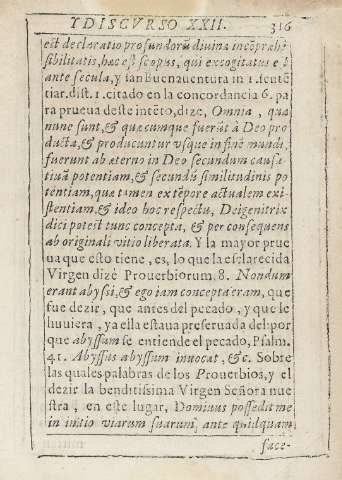 Y DISCVRSO XXII. 316
est declaratio profundorũ divina incõprahẽ
sibilitatis, hac est scopus, qui excogitatus est
ante secula, y san Buenauentura in 1. sentẽ
tiar. dist. 1. citado en la concordancia 6. pa
ra prueua deste intẽto, dize, Omnia, qua
nunc sunt, & quæcumque fuerũt à Deo pro
ducta, & producuntur vsque in finẽ mundi,
fuerunt ab aterno in Deo secundum causa
tiuã potentiam, & secundũ similitudinis po
tentiam, qua tamen ex tẽpore actualem exi-
stentiam, & ideo hoc respectu, Deigenitrix
dici potest tunc concepta, & per consequens
ab originali vitio liberata. Y la mayor prue
ua que esto tiene, es, lo que la esclarecida
Virgen dizẽ Prouerbiorum. 8. Nondum
erant abyssi, & ego iam concepta eram, que
fue dezir, que antes del pecado, y que le
huuiera, ya ella estaua preseruada del: por
que abyssum se entiende el pecado, Psalm.
41. Abyssus abyssum inuocat, &c. Sobre
las quales palabras de los Prouerbios, y el
dezir la benditissima Virgen Señora nue
stra, en este lugar, Dominus possedit me
in initio viarum suarum, ante quidquam
face-